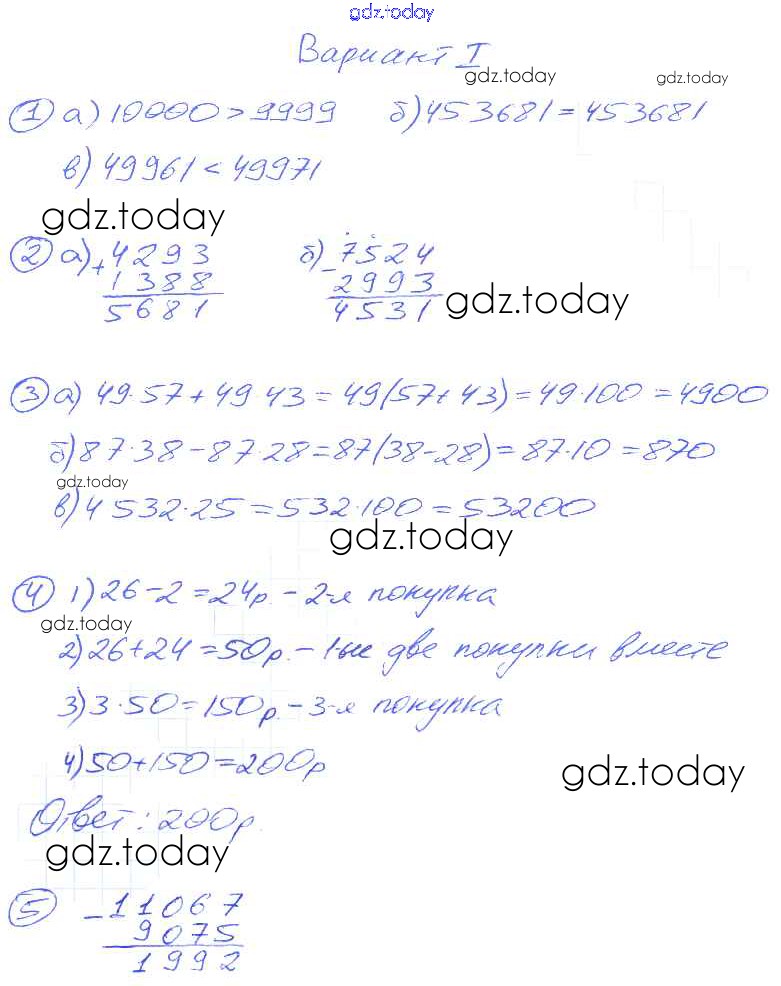 gdz.today
Вариант I
gdz.today gdz.today
① а) 10000 > 9999 б) 453681 = 453681
в) 49961 < 49971
gdz.today
② а) + 4293 б) - 7524
1388 2993
5681 4531
gdz.today
③ а) 49·57 + 49·43 = 49(57+43) = 49·100 = 4900
б) 87·38 - 87·28 = 87(38-28) = 87·10 = 870
gdz.today
в) 4 532·25 = 532·100 = 53200
gdz.today
④ 1) 26-2 = 24р. - 2-я покупка
gdz.today
2) 26+24 = 50р. - 1-ые две покупки вместе
3) 3·50 = 150р. - 3-я покупка
4) 50+150 = 200р
gdz.today
Ответ: 200р.
gdz.today
⑤ - 11067
9075
1992